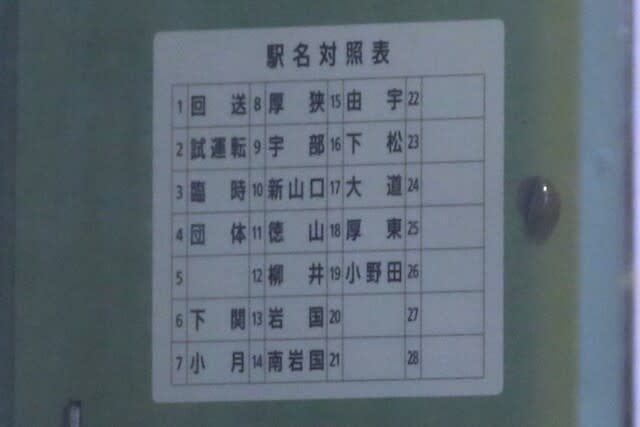 駅名対照表
1 回送 8 厚狭 15 由宇 22
2 試運転 9 宇部 16 下松 23
3 臨時 10 新山口 17 大道 24
4 団体 11 徳山 18 厚東 25
5 12 柳井 19 小野田 26
6 下関 13 岩国 20 27
7 小月 14 南岩国 21 28